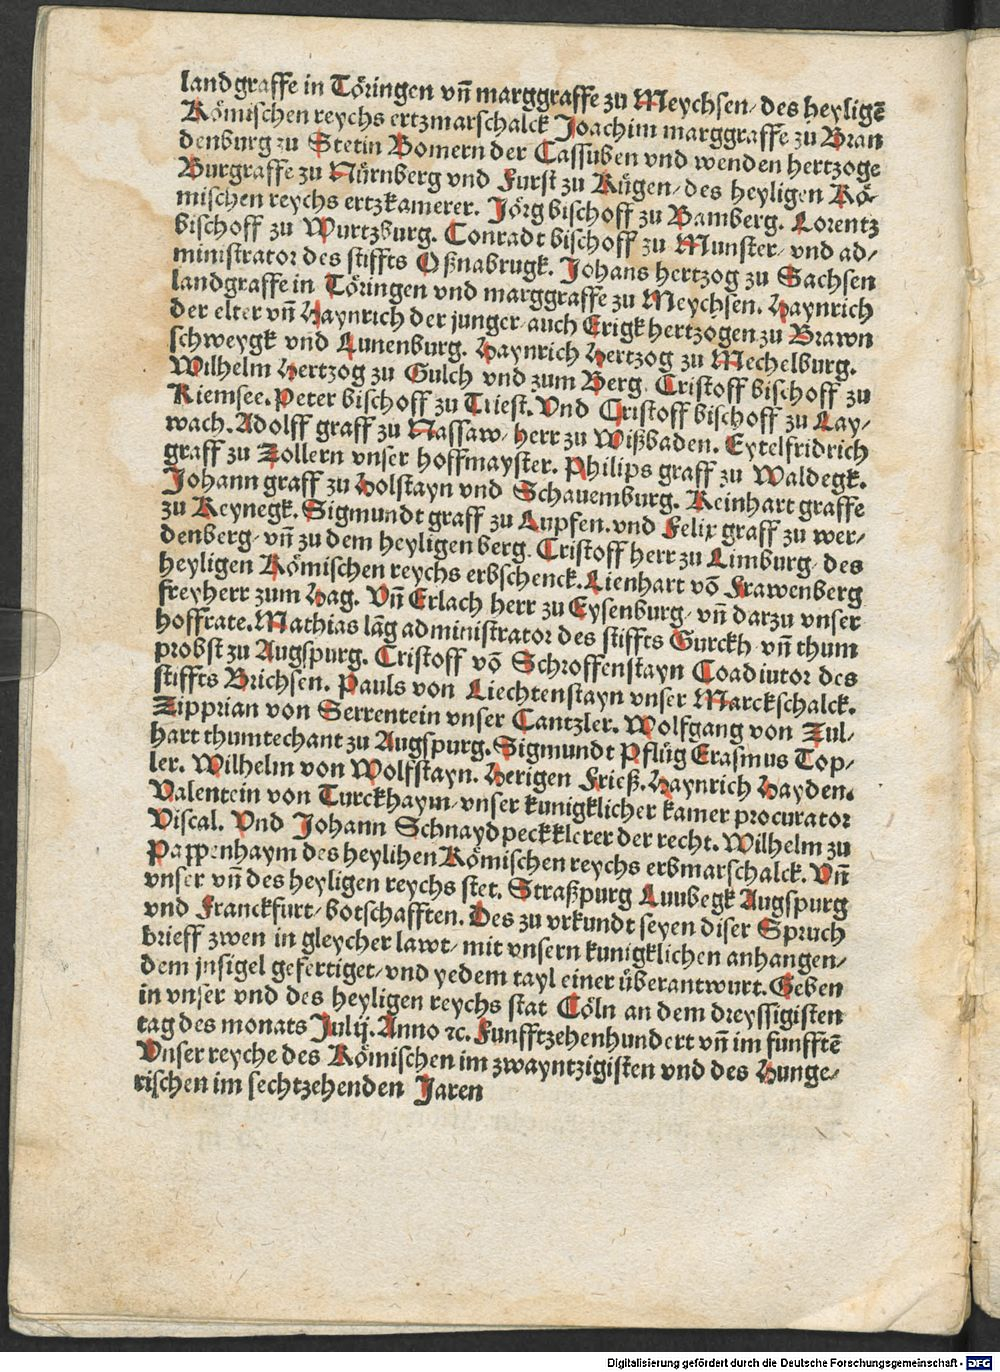 landgraffe in Töringen vn̄ marggraffe zu Meychsen/ des heyligē
Römischen reychs ertzmarschalck Joachim marggraffe zu Bran
denburg zu Stetin Bomern der Cassuben vnd wenden hertzoge
Burgraffe zu Nürnberg vnd Furst zu Rügen/ des heyligen Rö-
mischen reychs ertzkamerer. Jörg bischoff zu Bamberg. Lorentz
bischoff zu Wurtzburg. Conradt bischoff zu Munster/ vnd ad/
ministrator des stiffts Oßnabrugk. Johans hertzog zu Sachsen
landgraffe in Töringen vnd marggraffe zu Meychsen. Haynrich
der elter vn̄ Haynrich der junger/ auch Erigk hertzogen zu Brawn
schweygk vnd Lunenburg. Haynrich Hertzog zu Mechelburg.
Wilhelm Hertzog zu Gulch vnd zum Berg. Cristoff bischoff zu
Kiemsee. Peter bischoff zu Triest. Vnd Cristoff bischoff zu Lay/
wach. Adolff graff zu Nassaw/ herr zu Wißbaden. Eytelfridrich
graff zu Zollern vnser hoffmayster. Philips graff zu Waldegk.
Johann graff zu Holstayn vnd Schauemburg. Reinhart graffe
zu Reynegk. Sigmundt graff zu Lupfen. vnd Felix graff zu wer/
denberg/ vn̄ zu dem heyligen berg. Cristoff herr zu Limburg/ des
heyligen Römischen reychs erbschenck. Lienhart vō Frawenberg
freyherr zum Hag. Vn̄ Erlach herr zu Eysenburg/ vn̄ darzu vnser
hoffrate. Mathias lāg administrator des stiffts Gurckh vn̄ thum
probst zu Augspurg. Cristoff vō Schroffenstayn Coadiutor des
stiffts Brichsen. Pauls von Liechtenstayn vnser Marckschalck.
Zipprian von Serrentein vnser Cantzler. Wolfgang von Zul-
hart thumtechant zu Augspurg. Sigmundt Pflüg Erasmus Top/
ler. Wilhelm von Wolfstayn. Herigen Frieß. Haynrich Hayden.
Valentein von Turckhaym/ vnser kunigklicher kamer procurator
Viscal. Vnd Johann Schnaydpeckklerer der recht. Wilhelm zu
Pappenhaym des heylihen Römischen reychs erbmarschalck. Vn̄
vnser vn̄ des heyligen reychs stet. Straßpurg Luubegk Augspurg
vnd Franckfurt/ botschafften. Des zu vrkundt seyen diser Spruch
brieff zwen in gleycher lawt/ mit vnsern kunigklichen anhangen/
dem jnsigel gefertiget/ vnd yedem tayl einer überantwurt. Geben
in vnser vnd des heyligen reychs stat Cöln an dem dreyssigisten
tag des monats Julij. Anno ꝛc. Funfftzehenhundert vn̄ im funfftē
Vnser reyche des Römischen im zwayntzigisten vnd des Hunge/
rischen im sechtzehenden Jaren
Digitalisierung gefördert durch die Deutsche Forschungsgemeinschaft - DFG